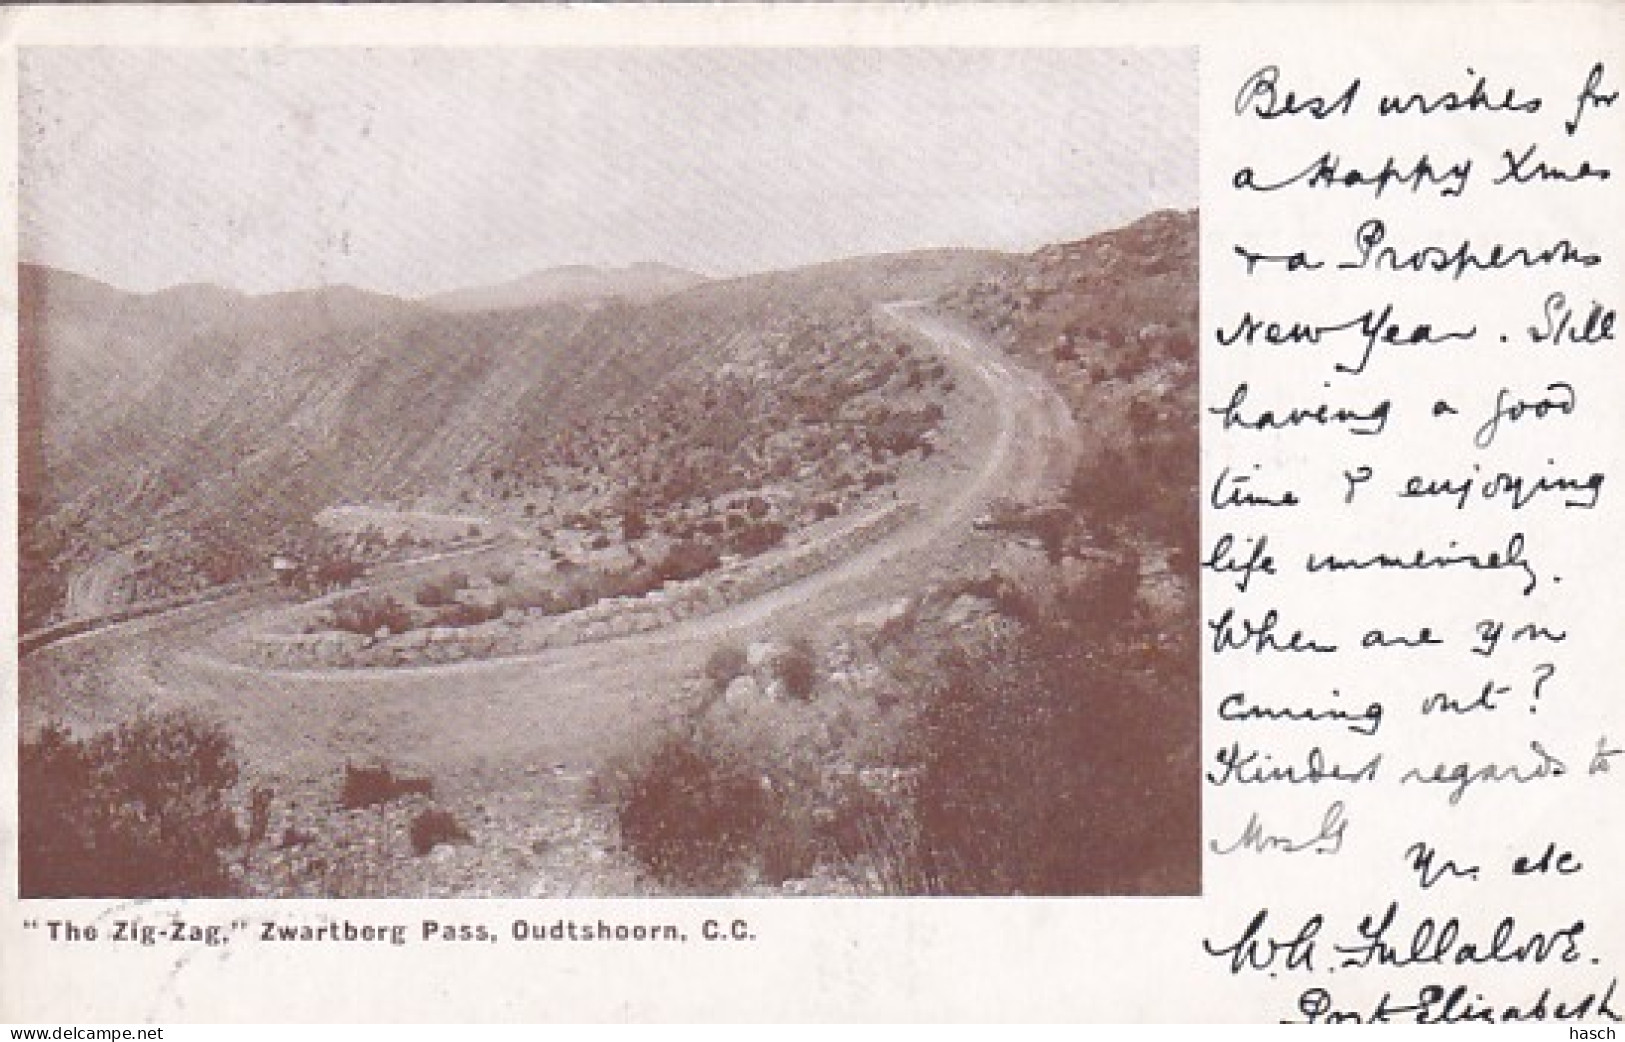 Best wishes for
a Happy Xmas
& a Prosperous
New Year. Still
having a good
time & enjoying
life immensely.
When are you
coming out?
Kindest regards to
Mrs G
Yrs etc
W.A. Fullalove.
Port Elizabeth
"The Zig-Zag," Zwartberg Pass, Oudtshoorn, C.C.
www.delcampe.net
hasch